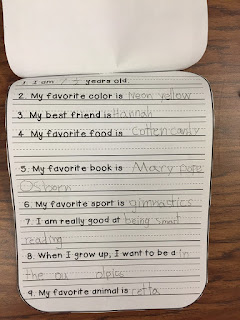 1. I am 7 ½ years old.
2. My favorite color is Neon yellow
3. My best friend is Hannah
4. My favorite food is Cotten candy
5. My favorite book is Mary pope
Osborn
6. My favorite sport is gimnactics
7. I am really good at being smart
reading
8. When I grow up, I want to be a in
the
9. My favorite animal is